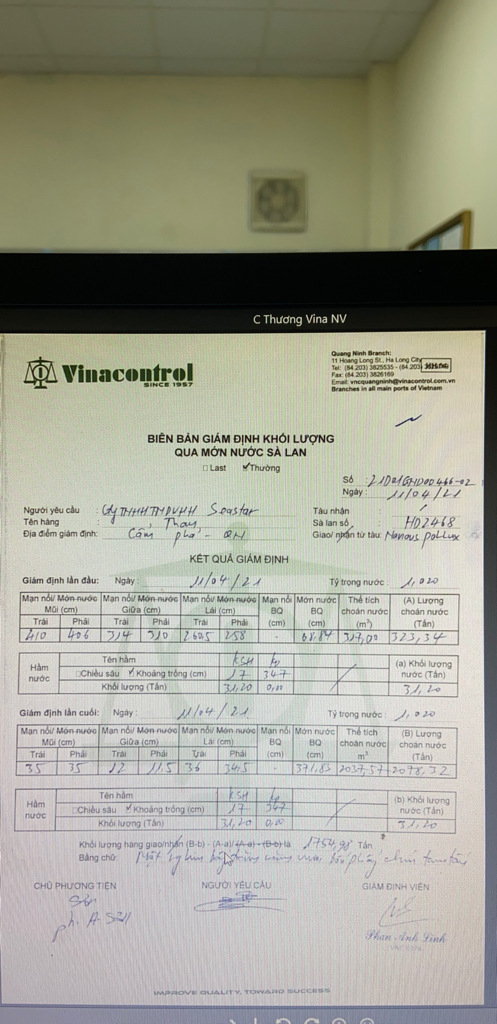 C Thương Vina NV
Vinacontrol
SINCE 1957
Quang Ninh Branch:
11 Hoang Long St., Ha Long City
Tel: (84.203) 3825535 - (84.203)
Fax: (84.203) 3826169
Email: vncquangninh@vinacontrol.com.vn
Branches in all main ports of Vietnam
BIÊN BẢN GIÁM ĐỊNH KHỐI LƯỢNG
QUA MỚN NƯỚC SÀ LAN
Last Thường
Số : 21D01GHD00466-02
Ngày : 11/04/21
Người yêu cầu : Cty TNHH TMDVHH Seastar
Tàu nhận :
Tên hàng : Than
Sà lan số : HD2468
Địa điểm giám định: Cẩm phả - QN
Giao/ nhận từ tàu: Nanous pollux
KẾT QUẢ GIÁM ĐỊNH
Giám định lần đầu: Ngày : 11/04/21 Tỷ trọng nước : 1,020
Mạn nổi/ Món nước Mũi (cm) Mạn nổi/ Món nước Giữa (cm) Mạn nổi/ Món nước Lái (cm) Mạn nổi BQ (cm) Món nước BQ (cm) Thể tích choán nước (m³) (A) Lượng choán nước (Tấn)
Trái Phải Trái Phải Trái Phải
410 406 314 310 260,5 258 - 68,84 317,00 323,34
Hầm nước Tên hầm KSH
Chiều sâu Khoảng trống (cm) 17 347
Khối lượng (Tấn) 31,20 0,00
(a) Khối lượng nước (Tấn)
31,20
Giám định lần cuối: Ngày : 11/04/21 Tỷ trọng nước : 1,020
Mạn nổi/ Món nước Mũi (cm) Mạn nổi/ Món nước Giữa (cm) Mạn nổi/ Món nước Lái (cm) Mạn nổi BQ (cm) Món nước BQ (cm) Thể tích choán nước m³ (B) Lượng choán nước (Tấn)
Trái Phải Trái Phải Trái Phải
35 35 12 11,5 36 34,5 - 371,83 2037,57 2078,32
Hầm nước Tên hầm KSH
Chiều sâu Khoảng trống (cm) 17 347
Khối lượng (Tấn) 31,20 0,00
(b) Khối lượng nước (Tấn)
31,20
Khối lượng hàng giao/nhận (B-b) - (A-a)/(A-a) - (B-b) là 1754,98 Tấn
Bằng chữ: Một nghìn bảy trăm năm mươi bốn phẩy chín tám tấn
CHỦ PHƯƠNG TIỆN NGƯỜI YÊU CẦU GIÁM ĐỊNH VIÊN
Phan Anh Tình
IMPROVE QUALITY, TOWARD SUCCESS